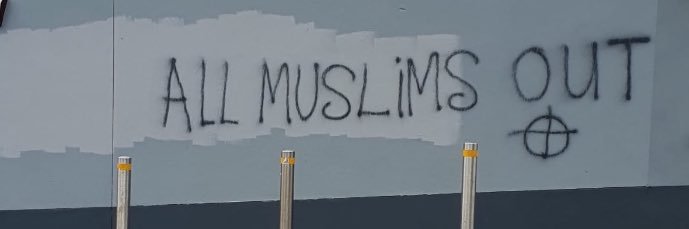 ALL MUSLiMS OUT